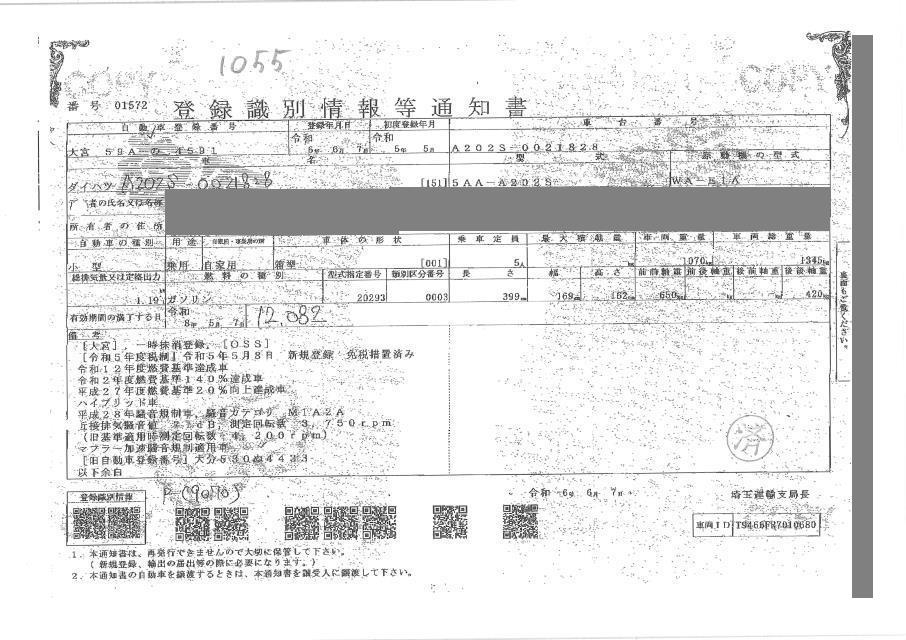 1055
COPY COPY
番号 01572 登録識別情報等通知書
自動車登録番号 登録年月日 初度登録年月 車台番号
令和 令和
大宮 59A 4591 6年 6月 7日 5年 5月 A202S-0021828
車名 型式 原動機の型式
ダイハツ A202S-0021828 [151] 5AA-A202S WA-
者の氏名又は名称
所有者の住所
自動車の種別 用途 自家用・事業用の別 車体の形状 乗車定員 最大積載量 車両重量 車両総重量
小型 乗用 自家用 箱型 [001] 5人 1070kg 1345kg
総排気量又は定格出力 燃料の種別 型式指定番号 類別区分番号 長さ 幅 高さ 前前軸重 前後軸重 後前軸重 後後軸重
1.19 ガソリン 20293 0003 399cm 169cm 162cm 650kg 420kg
有効期間の満了する日 令和
8年 5月 7日 12,082
備考
[大宮],一時抹消登録,[OSS]
[令和5年度税制]令和5年5月8日 新規登録 免税措置済み
令和12年度燃費基準達成車
令和2年度燃費基準140%達成車
平成27年度燃費基準20%向上達成車
ハイブリッド車
平成28年騒音規制車,騒音カテゴリ M1A2A
近接排気騒音値 dB,測定回転数 3,750rpm
(旧基準適用時測定回転数 4,200rpm)
マフラー加速騒音規制適用車
[旧自動車登録番号]大分530 4423
以下余白
済
裏面もご覧ください。
登録識別情報 令和 6年 6月 7日 埼玉運輸支局長
車両ID
1.本通知書は、再発行できませんので大切に保管して下さい。
(新規登録、輸出の届出等の際に必要になります。)
2.本通知書の自動車を譲渡するときは、本通知書を譲受人に譲渡して下さい。